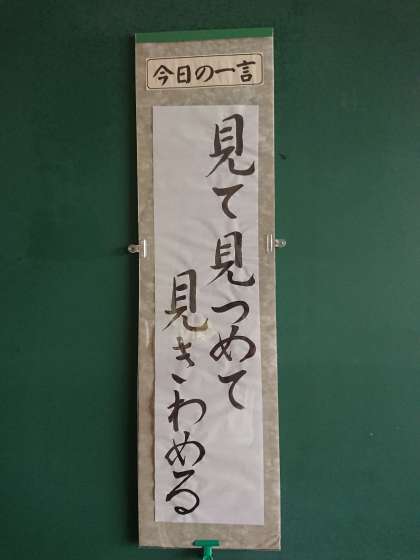 今日の一言
見て見つめて
見きわめる